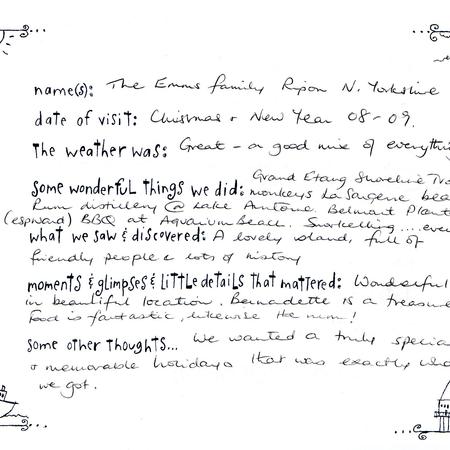 name(s): The Emms family Ripon N. Yorkshire
date of visit: Christmas + New Year 08-09.
The weather was: Great - a good mix of everything
Grand Etang Shoreline
some wonderful things we did: monkeys La Sagesse
Rum distillery @ Lake Antoine. Belmont
(espward) BBQ at Aquarium Beach. Snorkelling ....
what we saw & discovered: A lovely island, full of
friendly people & lots of history
moments & glimpses & little details that mattered: Wonderful
in beautiful location. Bernadette is a treasure
Food is fantastic, likewise the rum!
some other thoughts... We wanted a truly
+ memorable holiday & that was exactly
we got.